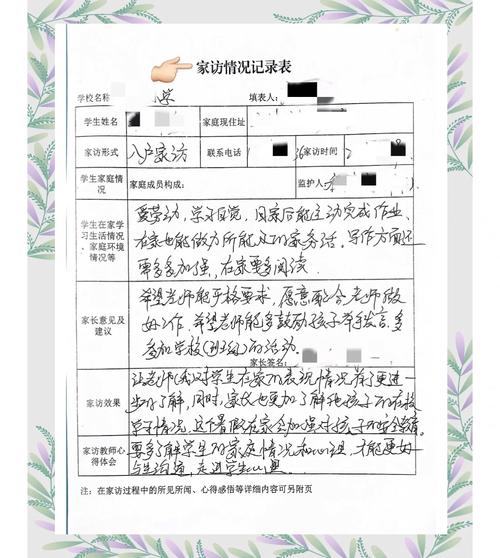 家访情况记录表
学校名称
填表人：
学生姓名
家庭现住址
家访形式 入户家访 联系电话 家访时间
学生家庭情况 家庭成员构成： 监护人：
学生在家学习生活情况、家庭环境情况等
爱劳动，学习自觉，回家后能主动完成作业、
在家也能做力所能及的家务活。写作方面还
要多多加强，在家要多阅读.
家长意见及建议
希望老师能严格要求，愿意配合老师做
好工作。希望老师能多鼓励孩子举手发言，多
参加学校(班级)的活动.
家长签名：
家访效果
让老师(我)对学生在家的表现情况有了更进一
步的了解，同时，家长也更加了解孩子在校
学习情况，这个暑假在家会加强对孩子的安全教育。
家访教师心得体会
要多了解学生的家庭情况和心理，才能更好
与生沟通，走进学生心里
注：在家访过程中的所见所闻、心得感悟等详细内容可另附页